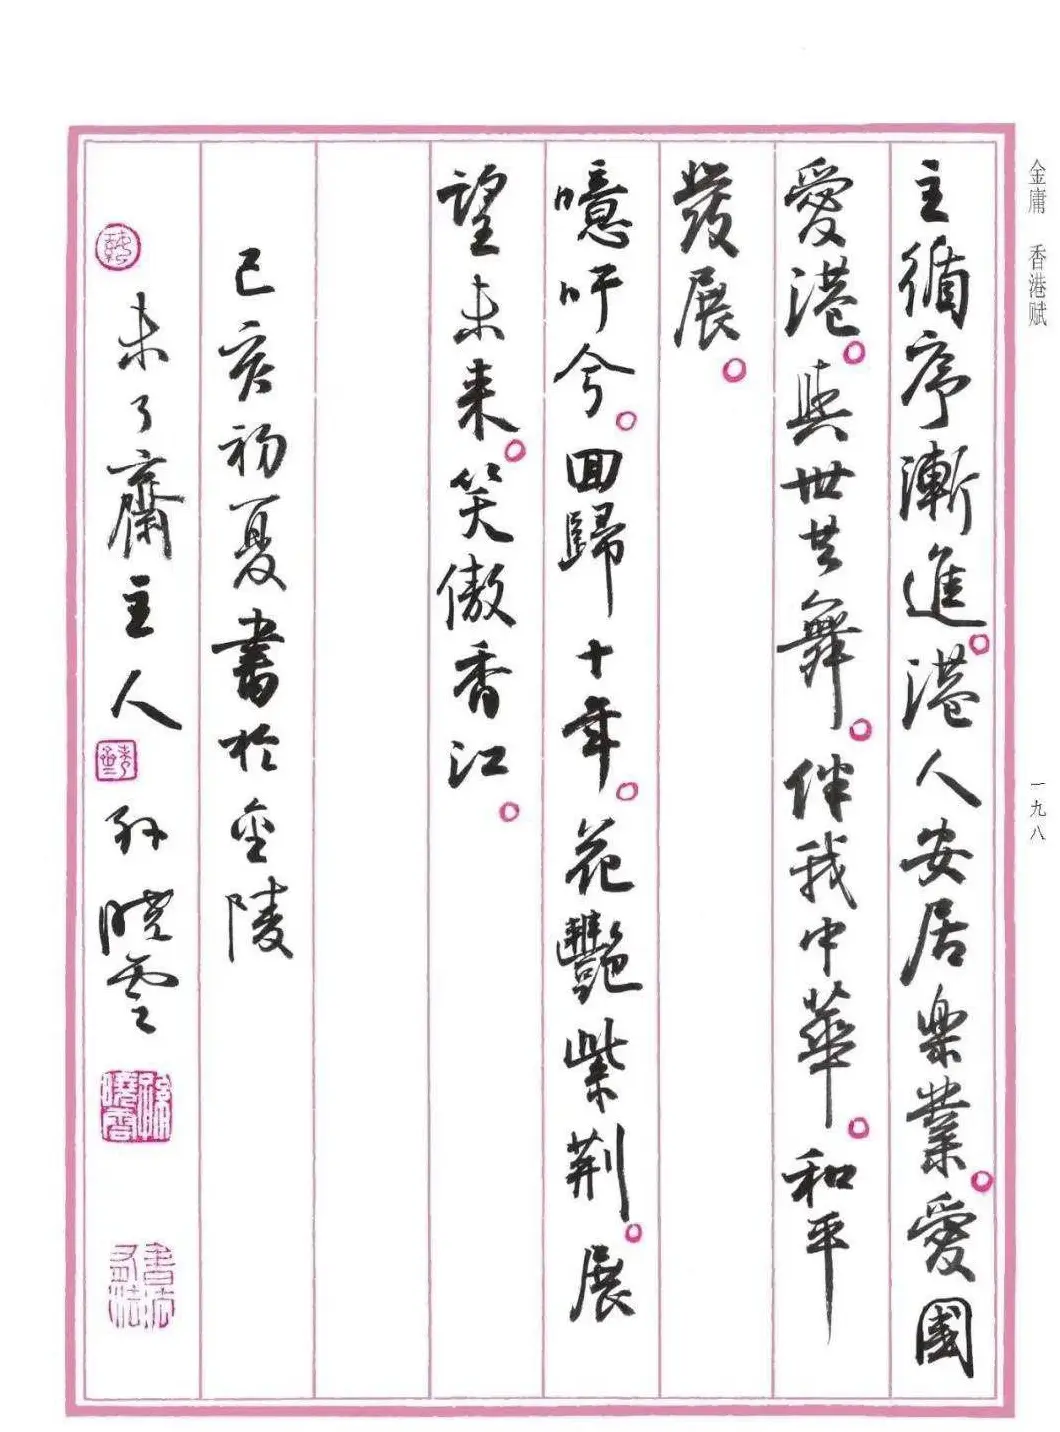 金庸 香港赋
一九八
主循序漸進。港人安居樂業。愛國
愛港。與世共舞。伴我中華。和平
發展。
噫吁兮。回歸十年。花艷紫荆。展
望未来。笑傲香江。
己亥初夏書於金陵
未了齋主人 孙曉雲
孫曉雲